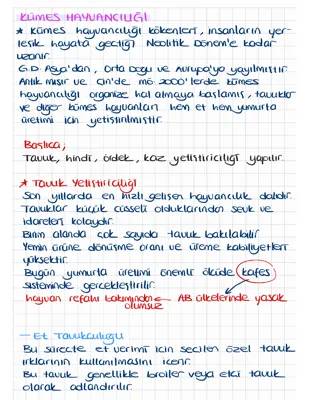 KÜMES HAYVANCILIĞI
* Kümes hayvancılığı kökenleri, insanların yer-
leşik hayata geçtiği Neolitik Dönem'e kadar
uzanır.
G.D. Asya'dan, Orta Doğu ve Avrupa'ya yayılmıştır.
Antik Mısır ve Çin'de mö 2000'lerde kümes
hayvancılığı organize hal almaya başlamış, tavuklar
ve diğer kümes hayvanları hem et hem yumurta
üretimi için yetiştirilmiştir.
Başlıca;
Tavuk, hindi, ördek, kaz yetiştiriciliği yapılır.
* Tavuk Yetiştiriciliği
Son yıllarda en hızlı gelişen hayvancılık dalıdır.
Tavuklar küçük cüsseli olduklarından sevk ve
idareleri kolaydır.
Birim alanda çok sayıda tavuk bakılabilir.
Yemin ürüne dönüşme oranı ve üreme kabiliyetleri
yüksektir.
Bugün yumurta üretimi önemli ölçüde kafes
sisteminde gerçekleştirilir.
hayvan refahı bakımından olumsuz ← AB ülkelerinde yasak
— Et Tavukçuluğu
Bu süreçte et verimi için seçilen özel tavuk
ırklarının kullanılmasını içerir.
Bu tavuk genellikle broiler veya etçi tavuk
olarak adlandırılır.